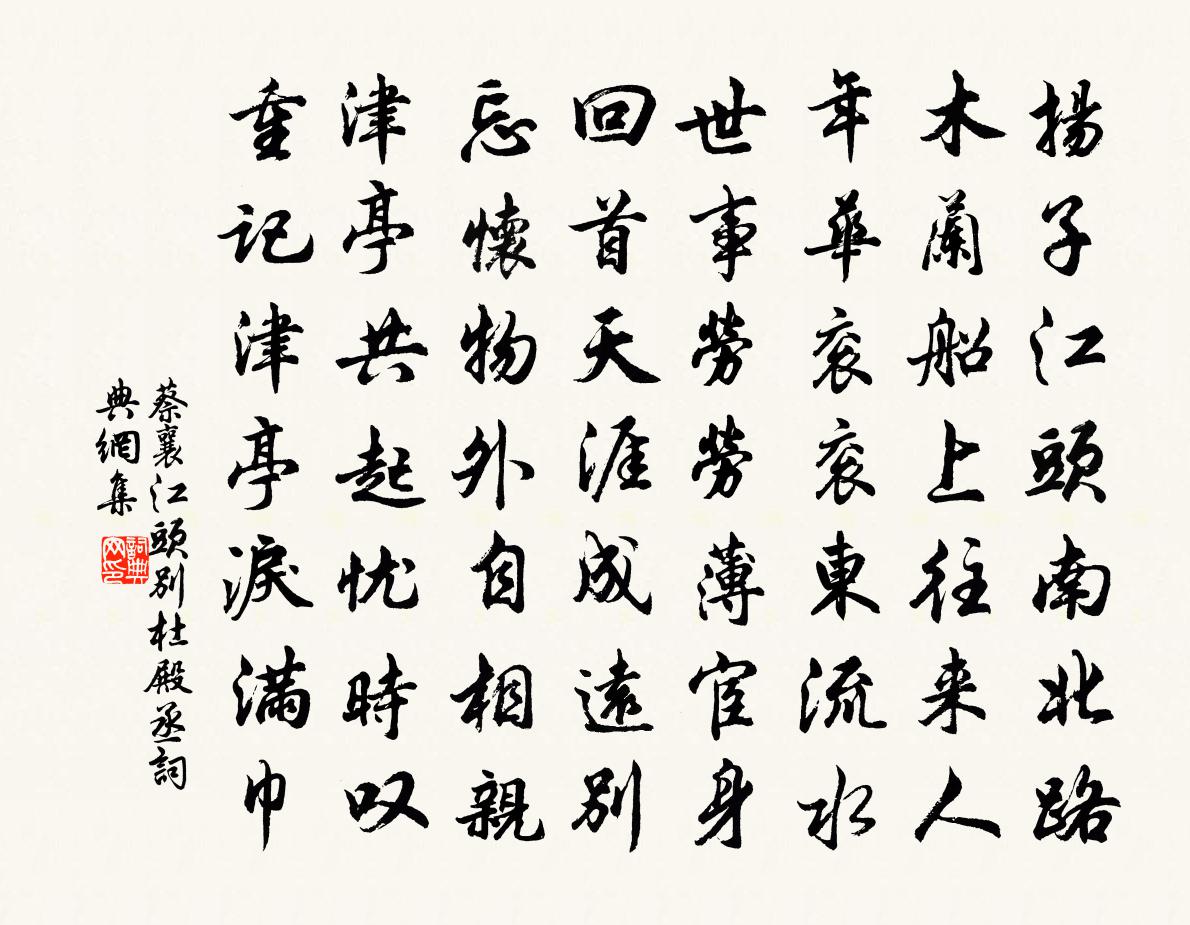 揚子江頭南北路
木蘭船上往来人
年華衮衮東流水
世事勞勞薄宦身
回首天涯成遠別
忘懷物外自相親
津亭共起忧時叹
重记津亭淚滿巾
蔡襄江頭別杜殿丞詞
典網集
詞典
网印